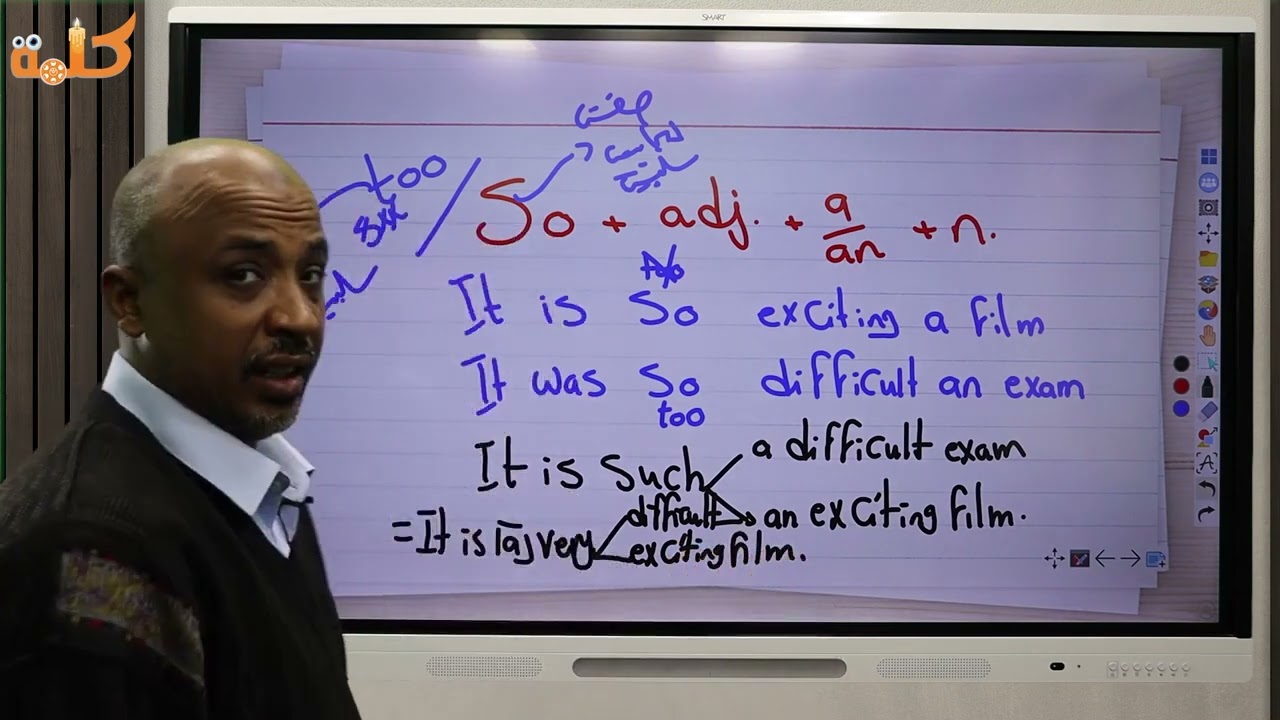 كلمة
SMART
صفت
too / So + adj. + a/an + n.
too
It is So exciting a film
It was So difficult an exam
too
It is Such a difficult exam
an exciting film.
= It is [a] very difficult
exciting film.